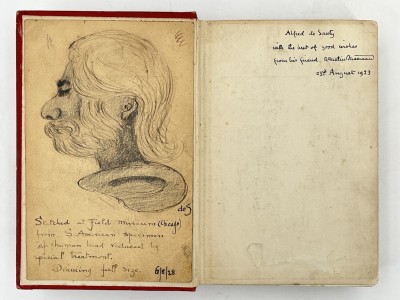 deS
Sketched at Field Museum (Chicago)
from S. American specimen
of human head reduced by
special treatment.
Drawing full size. 6/8/28
Alfred de Sauty
with the best of good wishes
from his friend,
25th August 1923